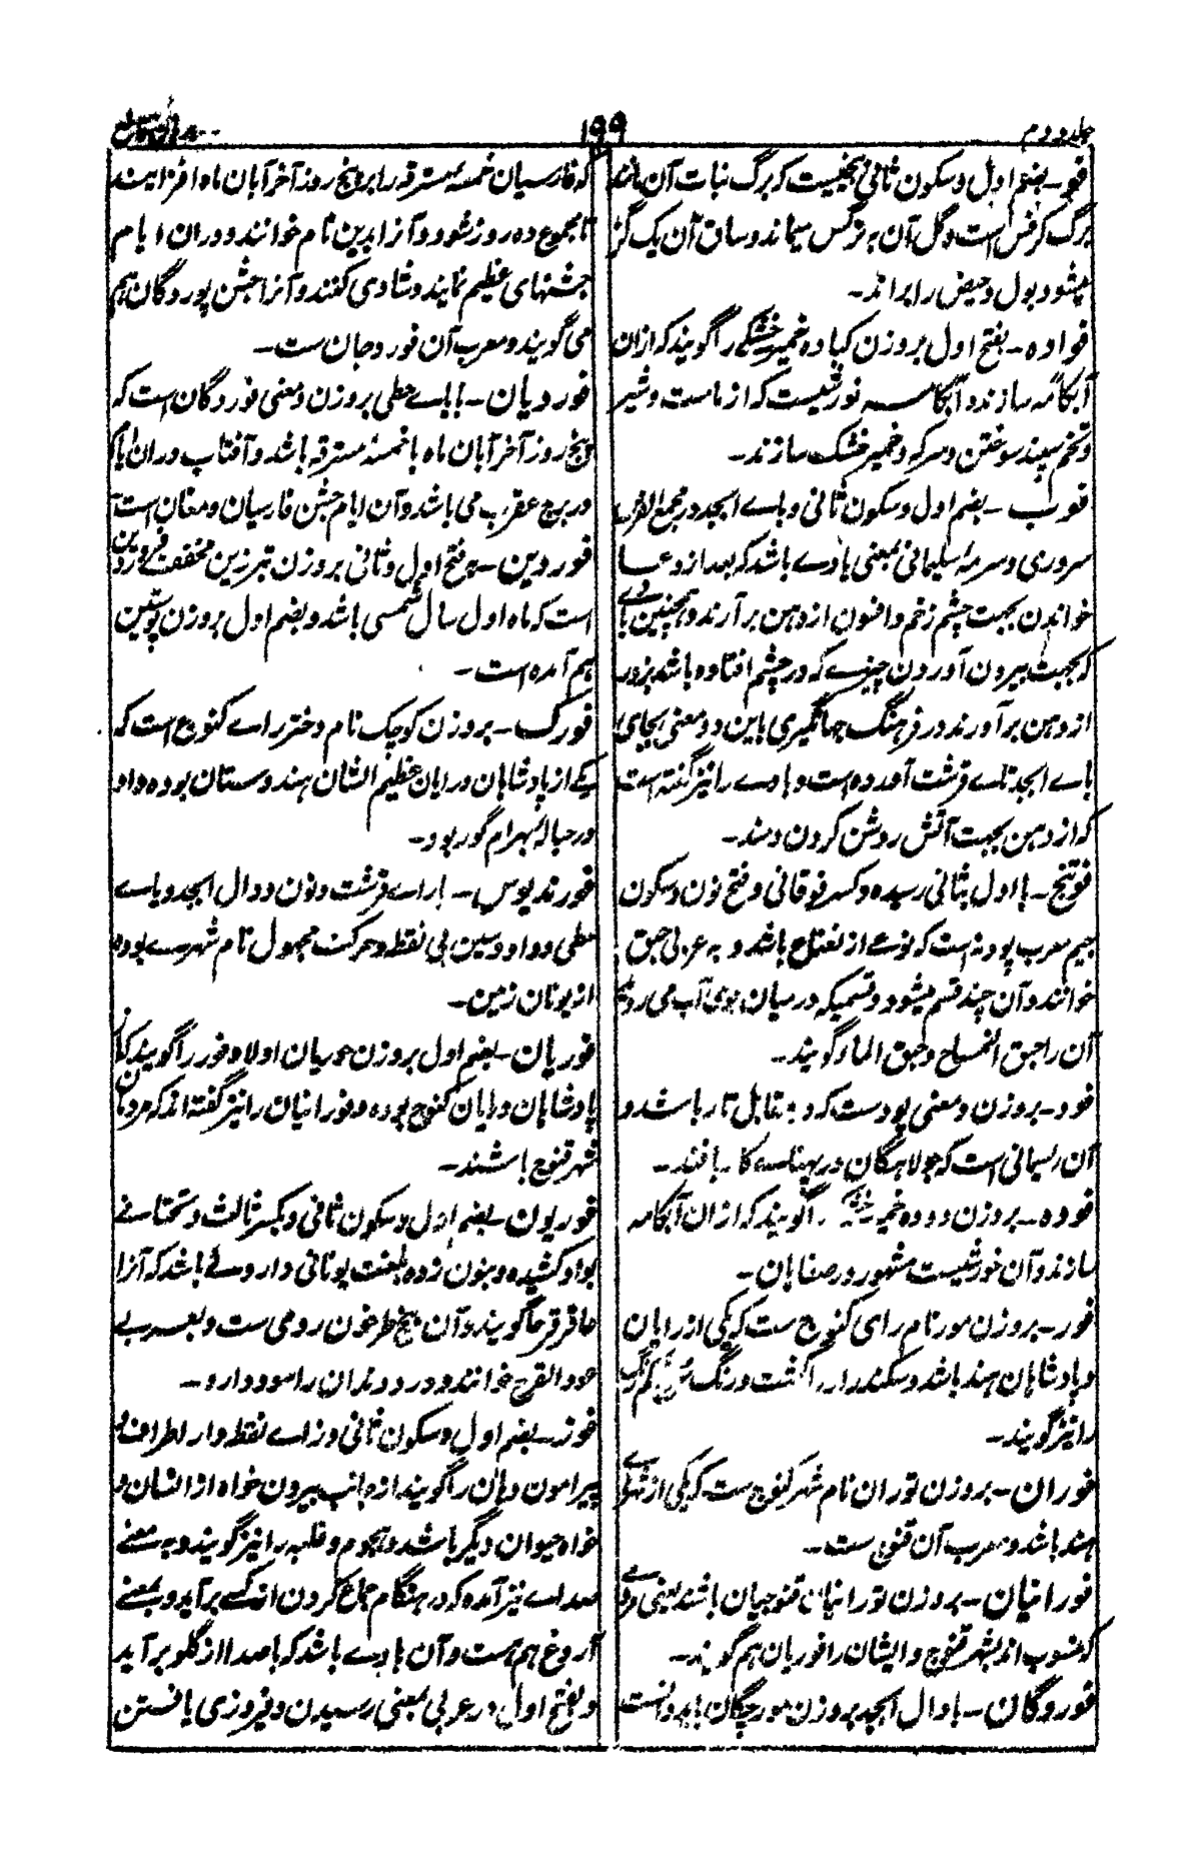 جلد دوم
۱۹۹
برهان قاطع
فو - بضم اول و سکون ثانی بیخیست که برگ نبات آن مانند
برگ کرفس است و گل آن به نرگس میماند و ساق آن یک گز
میشود بول و حیض را براند -
فواده - بفتح اول بروزن کباده خمیر خشکے را گویند که ازان
آبکامه سازند و آبکامه خورشیست که از ماست و شیر
و تخم سپند سوختن و سرکه و خمیر خشک سازند -
فوب - بضم اول و سکون ثانی و باے ابجد در مجمع الفرس
سروری و سرمه سلیمانی بمعنی بادے باشد که بعد از دعا
خواندن بجهت چشم زخم و افسون از دهن برآرند و همچنین بادے
که بجهت بیرون آوردن چیزے که در چشم افتاده باشد بزور
از دهن برآورند در فرهنگ جهانگیری باین دو معنی بجای
باے ابجد تاے قرشت آمده است و بادے را نیز گفته است
که از دهن بجهت آتش روشن کردن دمند -
فوتنج - با اول بثانی رسیده و کسر فوقانی و فتح نون و سکون
جیم معرب پودنه است که نوعے از نعناع باشد و به عربی حبق
خوانند و آن چند قسم میشود و قسمیکه در میان جوی آب می روید
آن را حبق التمساح و حبق الماء گویند -
فود - بروزن و معنی پود ست که در مقابل تار باشد و
آن ریسمانی است که جولاهگان در پهناے کار بافند -
فوده - بروزن دوده خمیر خشکے را گویند که ازان آبکامه
سازند و آن خورشیست مشهور در صفاهان -
فور - بروزن مور نام رای کنوج ست که یکی از رایان
و پادشاهان هند باشد و سکندر او را کشت و رنگ سرخ کم رنگ
را نیز گویند -
فوران - بروزن توران نام شهر کنوج ست که یکی از شهرهاے
هند باشد و معرب آن قنوج ست -
فورانیان - بروزن تورانیان قنوجیان باشند یعنی مردمے
که منسوب اند بشهر قنوج و ایشان را فوریان هم گویند -
فوردگان - با دال ابجد بروزن مورچگان باید دانست
که فارسیان خمسه مسترقه را بر پنج روز آخر آبان ماه افزایند
تا مجموع ده روز شود و آنرا بدین نام خوانند و دران ایام
جشنهای عظیم نمایند و شادی کنند و آنرا جشن پوردگان هم
می گویند و معرب آن فوردجان ست -
فوردیان - با یاے حطی بروزن و معنی فوردگان است که
پنج روز آخر آبان ماه با خمسهٔ مسترقه باشد و آفتاب دران ایام
در برج عقرب می باشد و آن ایام جشن فارسیان و مغان است
فوردین - بفتح اول و ثانی بروزن تبرزین مخفف فروردین
است که ماه اول سال شمسی باشد و بضم اول بروزن پوستین
هم آمده است -
فورک - بروزن کوچک نام دختر راے کنوج است که
یکے از پادشاهان و رایان عظیم الشان هندوستان بوده و او
در حباله بهرام گور بود -
فورندیوس - با راے قرشت و نون و دال ابجد و یاے
حطی و واو و سین بی نقطه و حرکت مجهول نام شهرے بوده
از یونان زمین -
فوریان - بضم اول بروزن حوریان اولاد فور را گویند که از
پادشاهان و رایان کنوج بوده و فورانیان را نیز گفته اند که مردمان
شهر قنوج باشند -
فوریون - بضم اول و سکون ثانی و بکسر ثالث و تحتانے
بواو کشیده و بنون زده بلغت یونانی داروئے باشد که آنرا
عاقرقرحا گویند و آن بیخ طرخون رومی ست و بعربے
عود القرح خوانند و درد دندان را سود دارد -
فوز - بضم اول و سکون ثانی و زاے نقطه دار اطراف و
پیرامون دهان را گویند از جانب بیرون خواه از انسان و
خواه حیوان دیگر باشد و هجوم و غلبه را نیز گویند و به معنے
صداے نیز آمده که در هنگام جماع کردن از کسے برآید و بمعنے
آروغ هم هست و آن بادے باشد که با صدا از گلو برآید
و بفتح اول در عربی بمعنی رسیدن و فیروزی یافتن